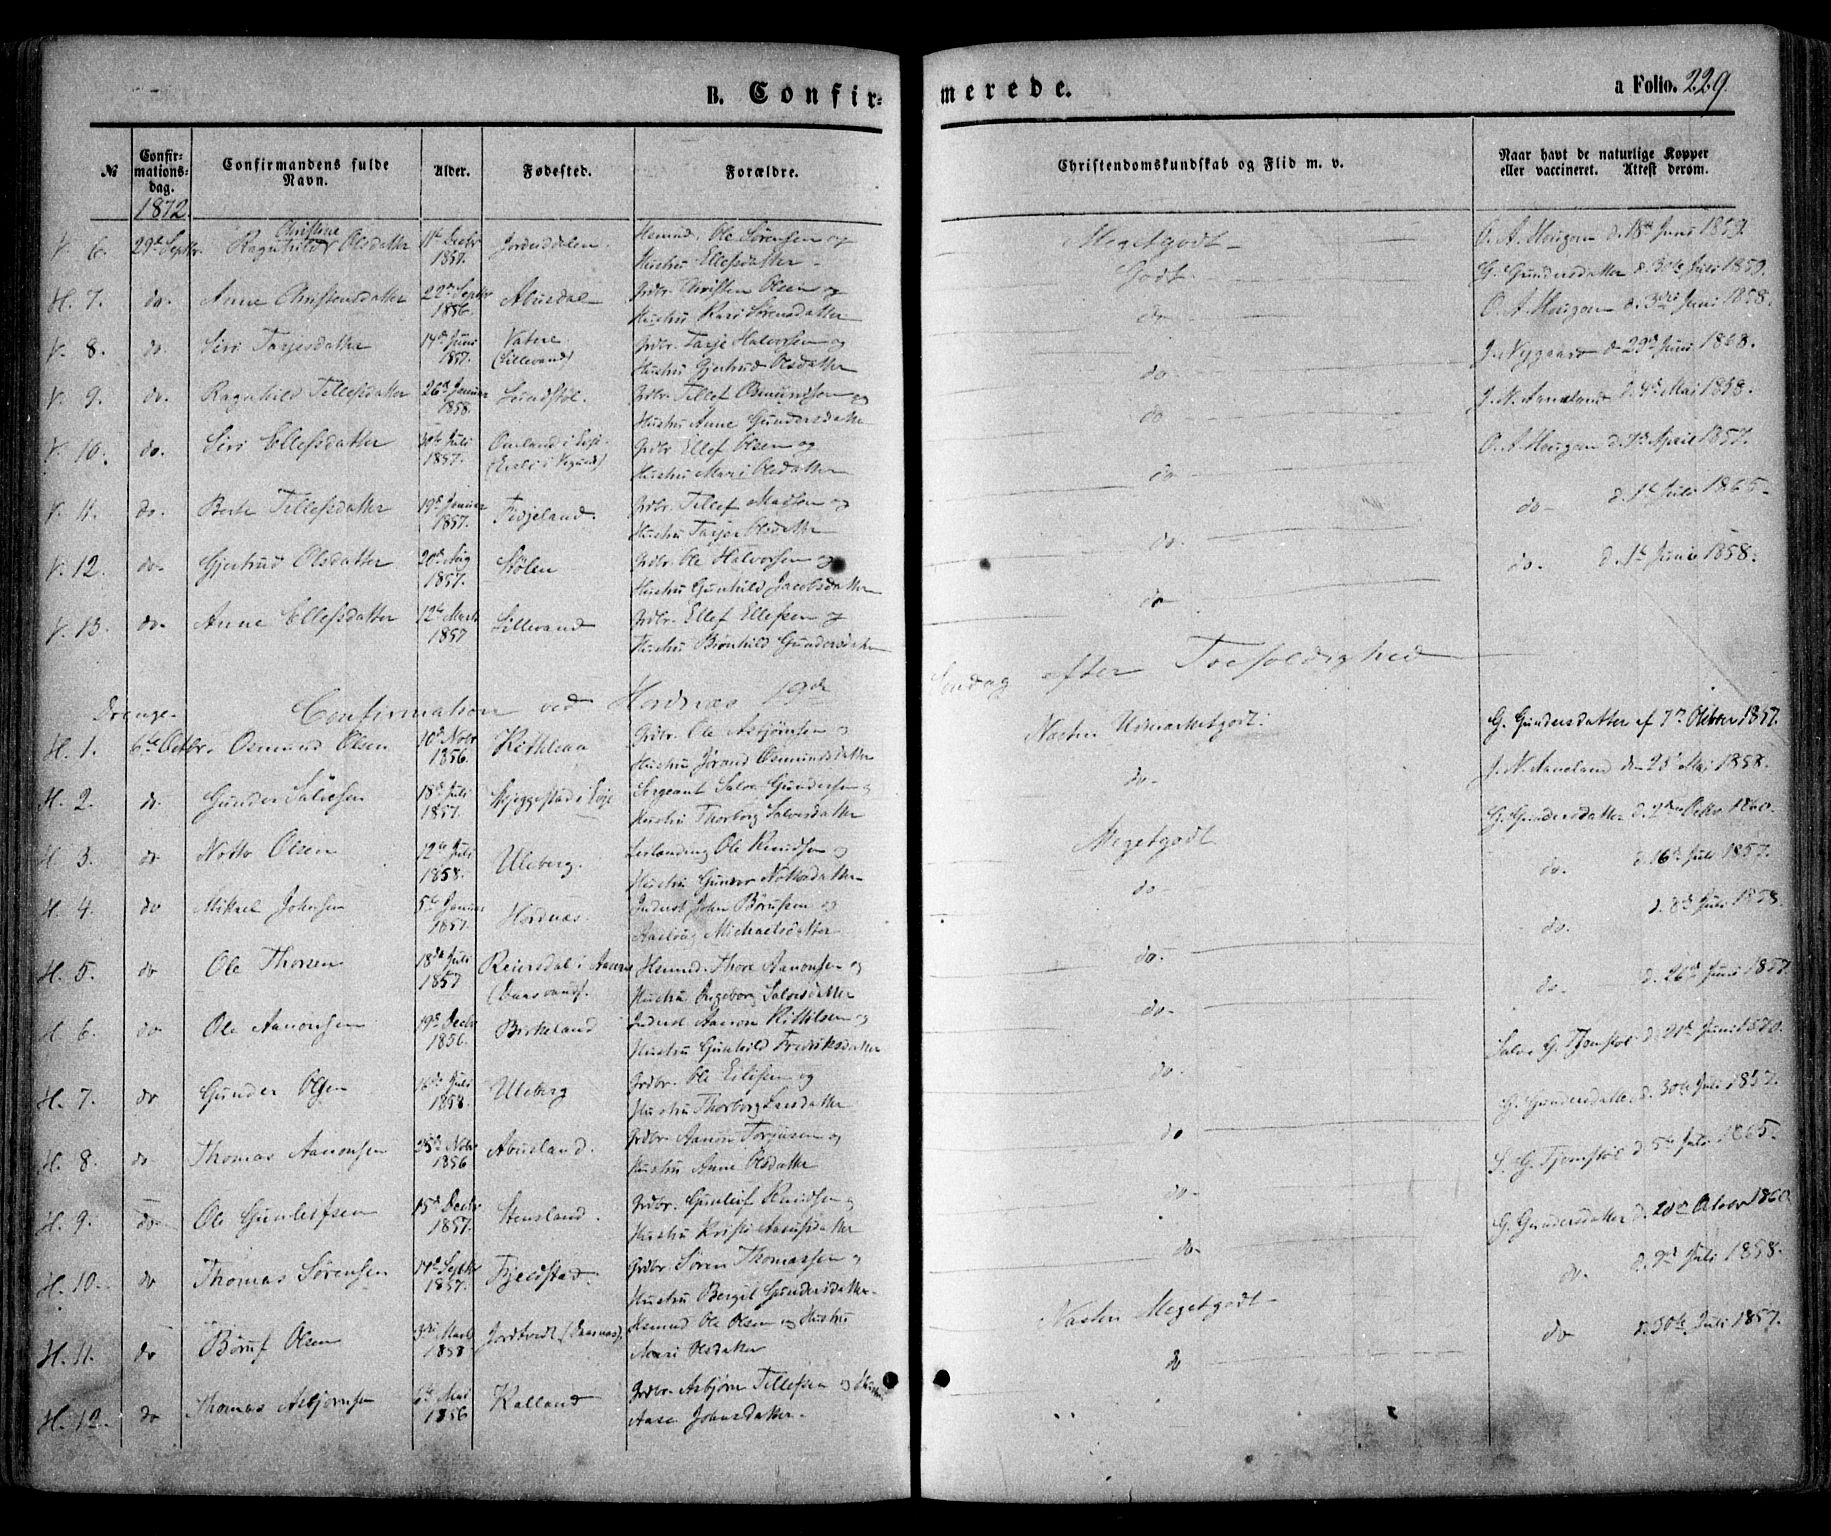 B. Confirmerede.
a Folio. 229.
№
Confirmationsdag. 1872.
Confirmandens fulde Navn.
Alder.
Fødested.
Forældre.
Christendomskundskab og Flid m. v.
Naar havt de naturlige Kopper eller vaccineret. Attest derom.
V. 6. 29de Septbr. Ragnhild Christine Olsdatter 11te Decbr 1857. Hemnd. Ole Sörensen og Hustru Ellefsdatter Megetgodt O. A. Hougom d. 18de Juni 1859.
H. 7. do. Anne Christensdatter 22de Septbr 1856. Abusdal Grdbr. Christen Olsen og Hustru Kari Sörensdatter Godt G. Gundersdatter d. 30te Juli 1859.
V. 8. do. Siri Tarjesdatter 14de Juni 1857. Vatne (Sillevand) Grdbr. Tarje Halvorsen og Hustru Gjertrud Olsdatter do O. A. Hougom d. 3die Juni 1858.
V. 9. do. Ragnhild Tellefsdatter 26de Januar 1858. Lundstöl. Grdbr. Tellef Osmundsen og Hustru Anne Gundersdatter do J. Nygaard d 29de Juni 1868.
V. 10. do. Siri Ellefsdatter Juli 1857. Grdbr. Ellef Olsen og Hustru Mari Olsdatter do J. N. Aaneland d. Mai 1858.
V. 11. do. Berte Tellefsdatter 19de Januar 1857. Fidjeland. Grdbr. Tellef Madsen og Hustru Tarjer Olsdatter do O. A. Hougom d. April 1857.
V. 12. do. Gjertrud Olsdatter 20de Aug 1857. Stölen Grdbr. Ole Halvorsen og Hustru Gunhild Jacobsdatter do. do d. 1ste Juli 1865.
V. 13. do. Anne Ellefsdatter 12te Marts 1857 Sillevand Grdbr. Ellef Ellefsen og Hustru Brönhild Gundersdatter do do. d. 1te Juni 1858.
Drenge Confirmation ved Hordnæs 19de Söndag efter Trefoldighed
H. 1. 6te Octbr. Osmund Olsen 10de Novbr 1856. Kithleaa Grdbr. Ole Asbjörnsen og Hustru Jörand Osmundsdatter Næsten Udmærketgodt. G. Gundersdatter af 7de Octbr 1857.
H. 2 do. Gunder Salvesen 18de Juli 1857. Skjeggestad i Evje Sergeant Salve Gundersen og Hustru Thorborg Salvesdatter do. J. N. Aaneland den 28de Mai 1858.
H. 3. do Notto Olsen 12te Juli 1858. Uleberg. Ole Knudsen og Hustru Gunvor Nottosdatter Megetgodt G. Gundersdatter d. 2den Octbr 1860.
H. 4. do Mikael Johnsen 5te Januar 1857. Hordnæs. Inderst John Börufsen og Aaslaug Michaelsdatter do. do. d. 16de Juli 1857.
H. 5. do Ole Thorsen 18de Juli 1857 Reiersdal i Hemnd. Thore Aanonsen og Hustru Ingeborg Salvesdatter do. do. d. 8de Juli 1858.
H 6. do Ole Aanonsen 19de Decbr 1856. Birkeland Inderst Aanon Kittilsen og Hustru Gunhild Fredriksdatter do. do. d. 26de Juni 1857.
H. 7. do Gunder Olsen Juli 1858. Uleberg Grdbr. Ole Eilifsen og Hustru Thorborg Larsdatter do. Salve G. Tjomstöl d. 21de Juni 1870.
H. 8. do Thomas Aanonsen 25de Novbr 1856 Abusland. Grdbr. Aanon Torjusen og Hustru Anne Olsdatter do G. Gundersdatter d. 30te Juli 1857.
H. 9. do Ole Gunleifsen 15de Decbr 1857. Stensland. Grdbr. Gunleif Knudsen og Hustru Kristi Aanundsdatter do. S. G. Tjomstöl d 5te Juli 1865.
H. 10. do Thomas Sörensen 14de Septbr 1857. Fjeldstad. Grdbr. Sören Thomassen og Hustru Bergit Gundersdatter do. G. Gundersdatter d. 20de Octobr 1860.
H. 11. do Böruf Olsen 3die Marts 1858 Hemnd Ole Olsen og Hustru Mari Olsdatter Næsten Megetgodt do. d. 9de Juli 1858.
H. 12. do Thomas Asbjörnsen 6te Mai 1856 Kalland Grdbr. Asbjörn Tellefsen og Hustru Aase Johnsdatter. do do d. 30te Juli 1857.